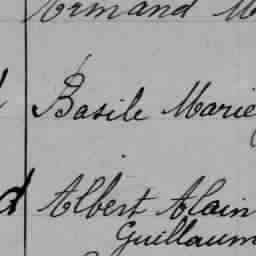 Armand M
Basile Marie
d Albert Alain
Guillaum